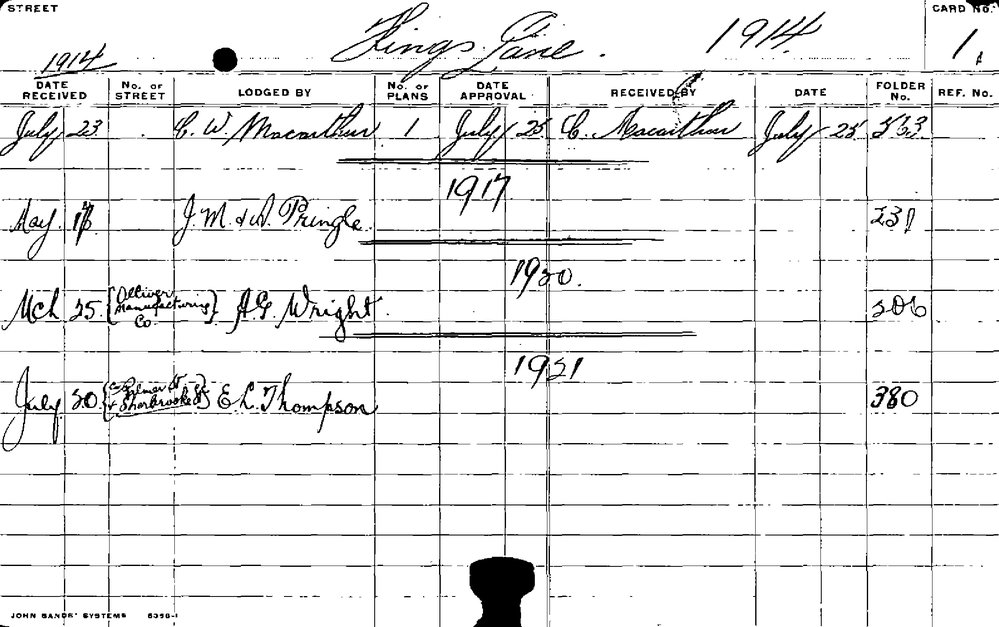 STREET
Kings Lane. 1914.
CARD No.
1
1914
DATE RECEIVED No. OF STREET LODGED BY No. OF PLANS DATE APPROVAL RECEIVED BY DATE FOLDER No. REF. No.
July 23 C. W. Macarthur 1 July 25 C. Macarthur July 25 563
1917
May J. M. & A. Pringle 231
1920.
Mch 25 { Olliver Manufacturing Co. } A.G. Wright 206
1921
July 20 { & Sharbrooke St } E. L. Thompson 380
JOHN SANDS' SYSTEMS